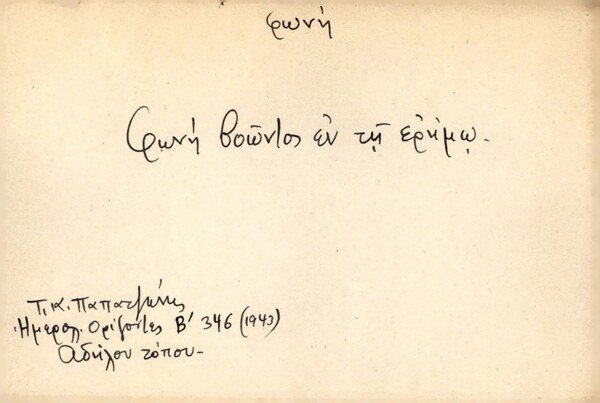 φωνή
Φωνή βοῶντος ἐν τῇ ἐρήμῳ.
Τ.Κ. Παπατζώνης
Ἡμερολ. Ορίζοντες Β' 346 (1943)
Αδήλου τόπου-